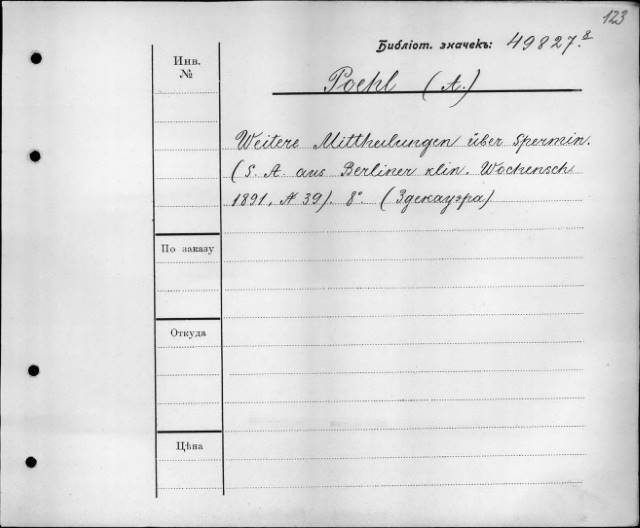 123
Библіот. значекъ: 49827.a
Инв. №
Poehl (A.)
Weitere Mittheilungen über Spermin.
(S. A. aus Berliner klin. Wochensch.
1891, № 39). 8°. (Здекауэра)
По заказу
Откуда
Цѣна